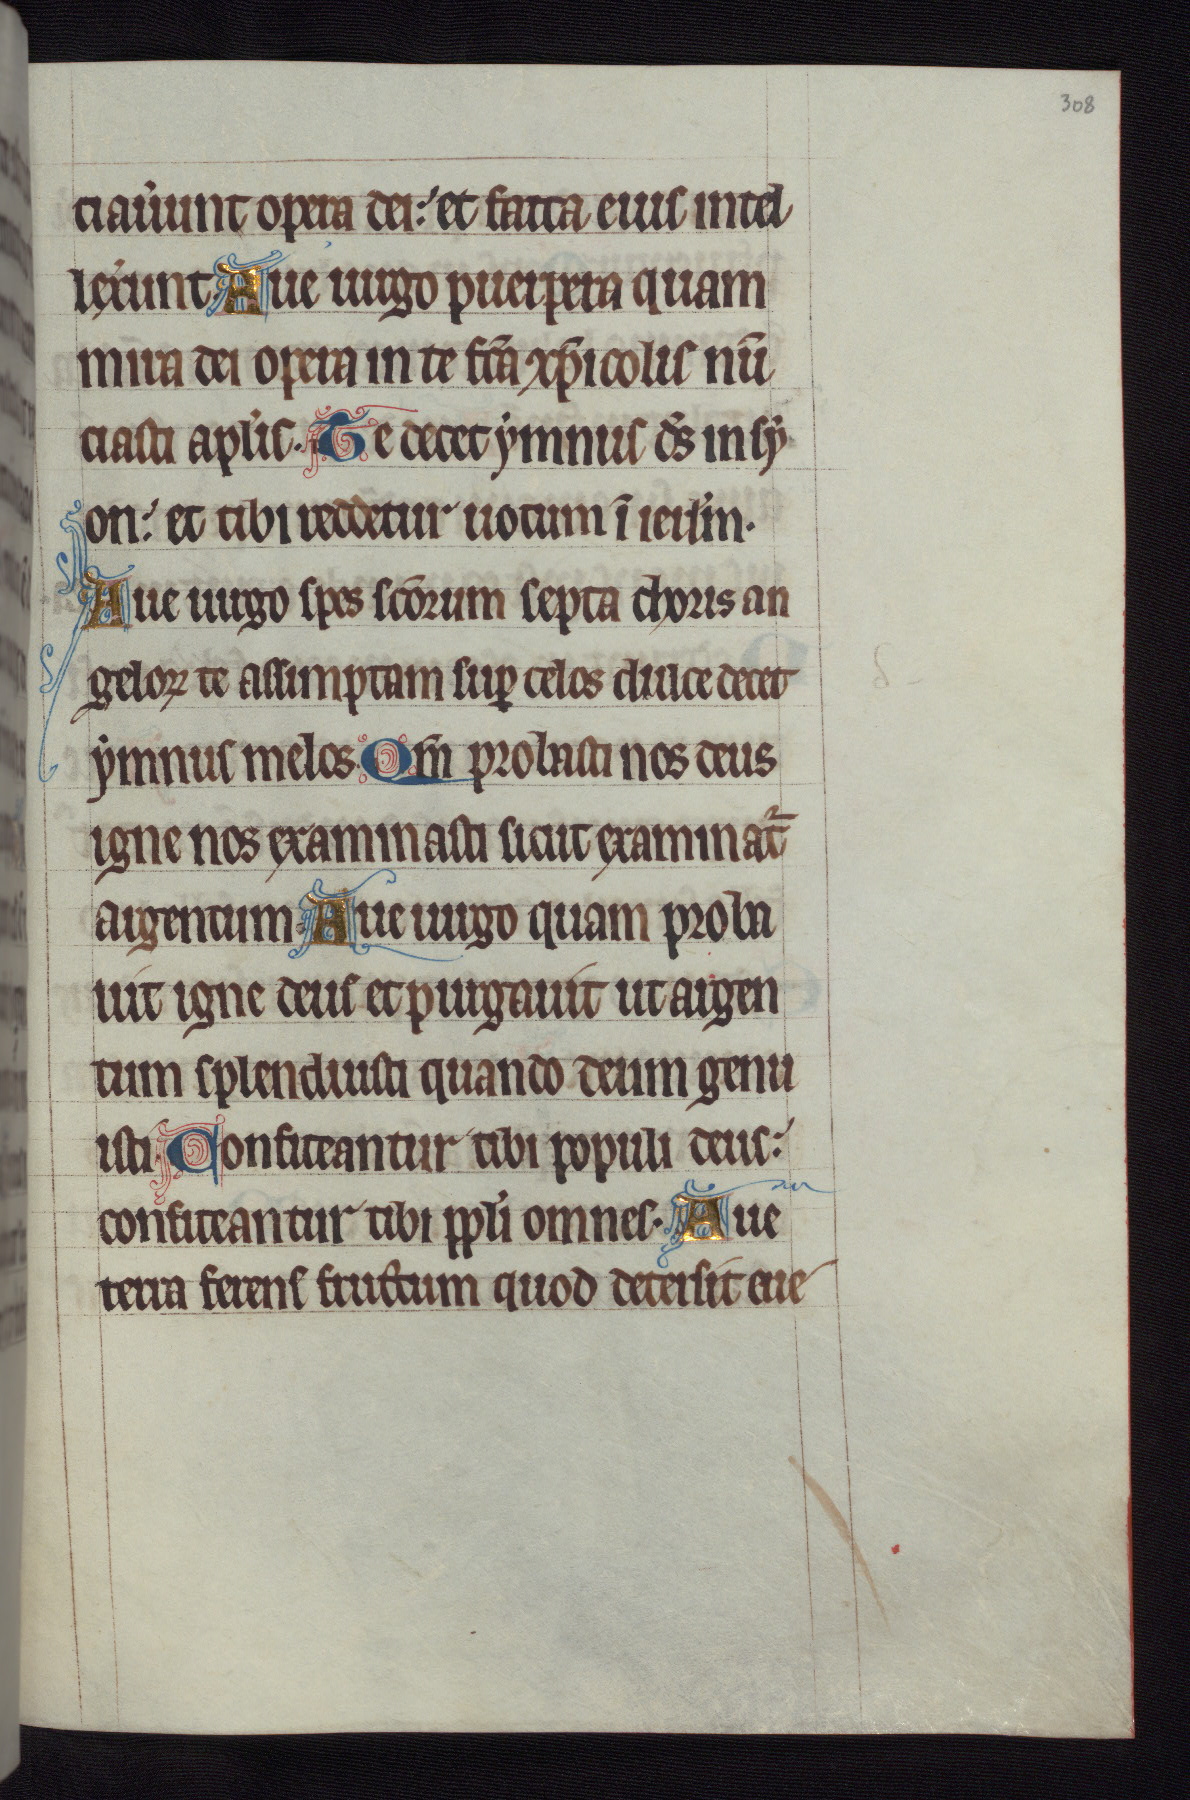 308
ciauͥunt opera dei: et facta eius intel
lexͥunt. Aue uirgo puerpera quam
mira dei opera in te fcā xp̄icolis nū
ciasti apl̓is. Te decet ymnus ds̄ in sy
on: et tibi reddetur uotum ī ierl̓m.
Aue uirgo spes scōrum septa choris an
geloꝝ te assumptam suꝑ celos dulce decet
ymnus melos. Qm̄ probasti nos deus
igne nos examinasti sicut examinat᷑
argentum. Aue uirgo quam proba
uit igne deus et purgauit ut argen
tum splenduisti quando deum genu
isti. Confiteantur tibi populi deus:
confiteantur tibi ppl̓i omnes. Aue
terra ferens fructum quod detersit eue